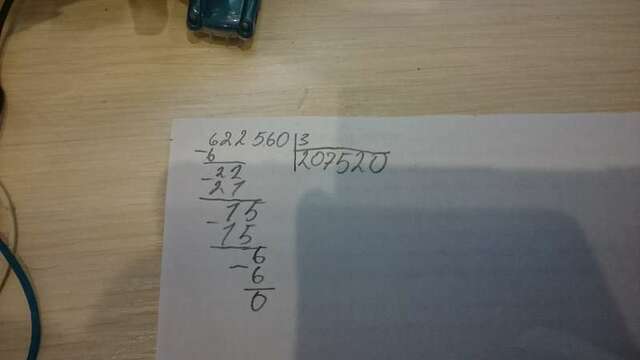 622 560 3
-6 207520
-22
21
-15
15
-6
6
0